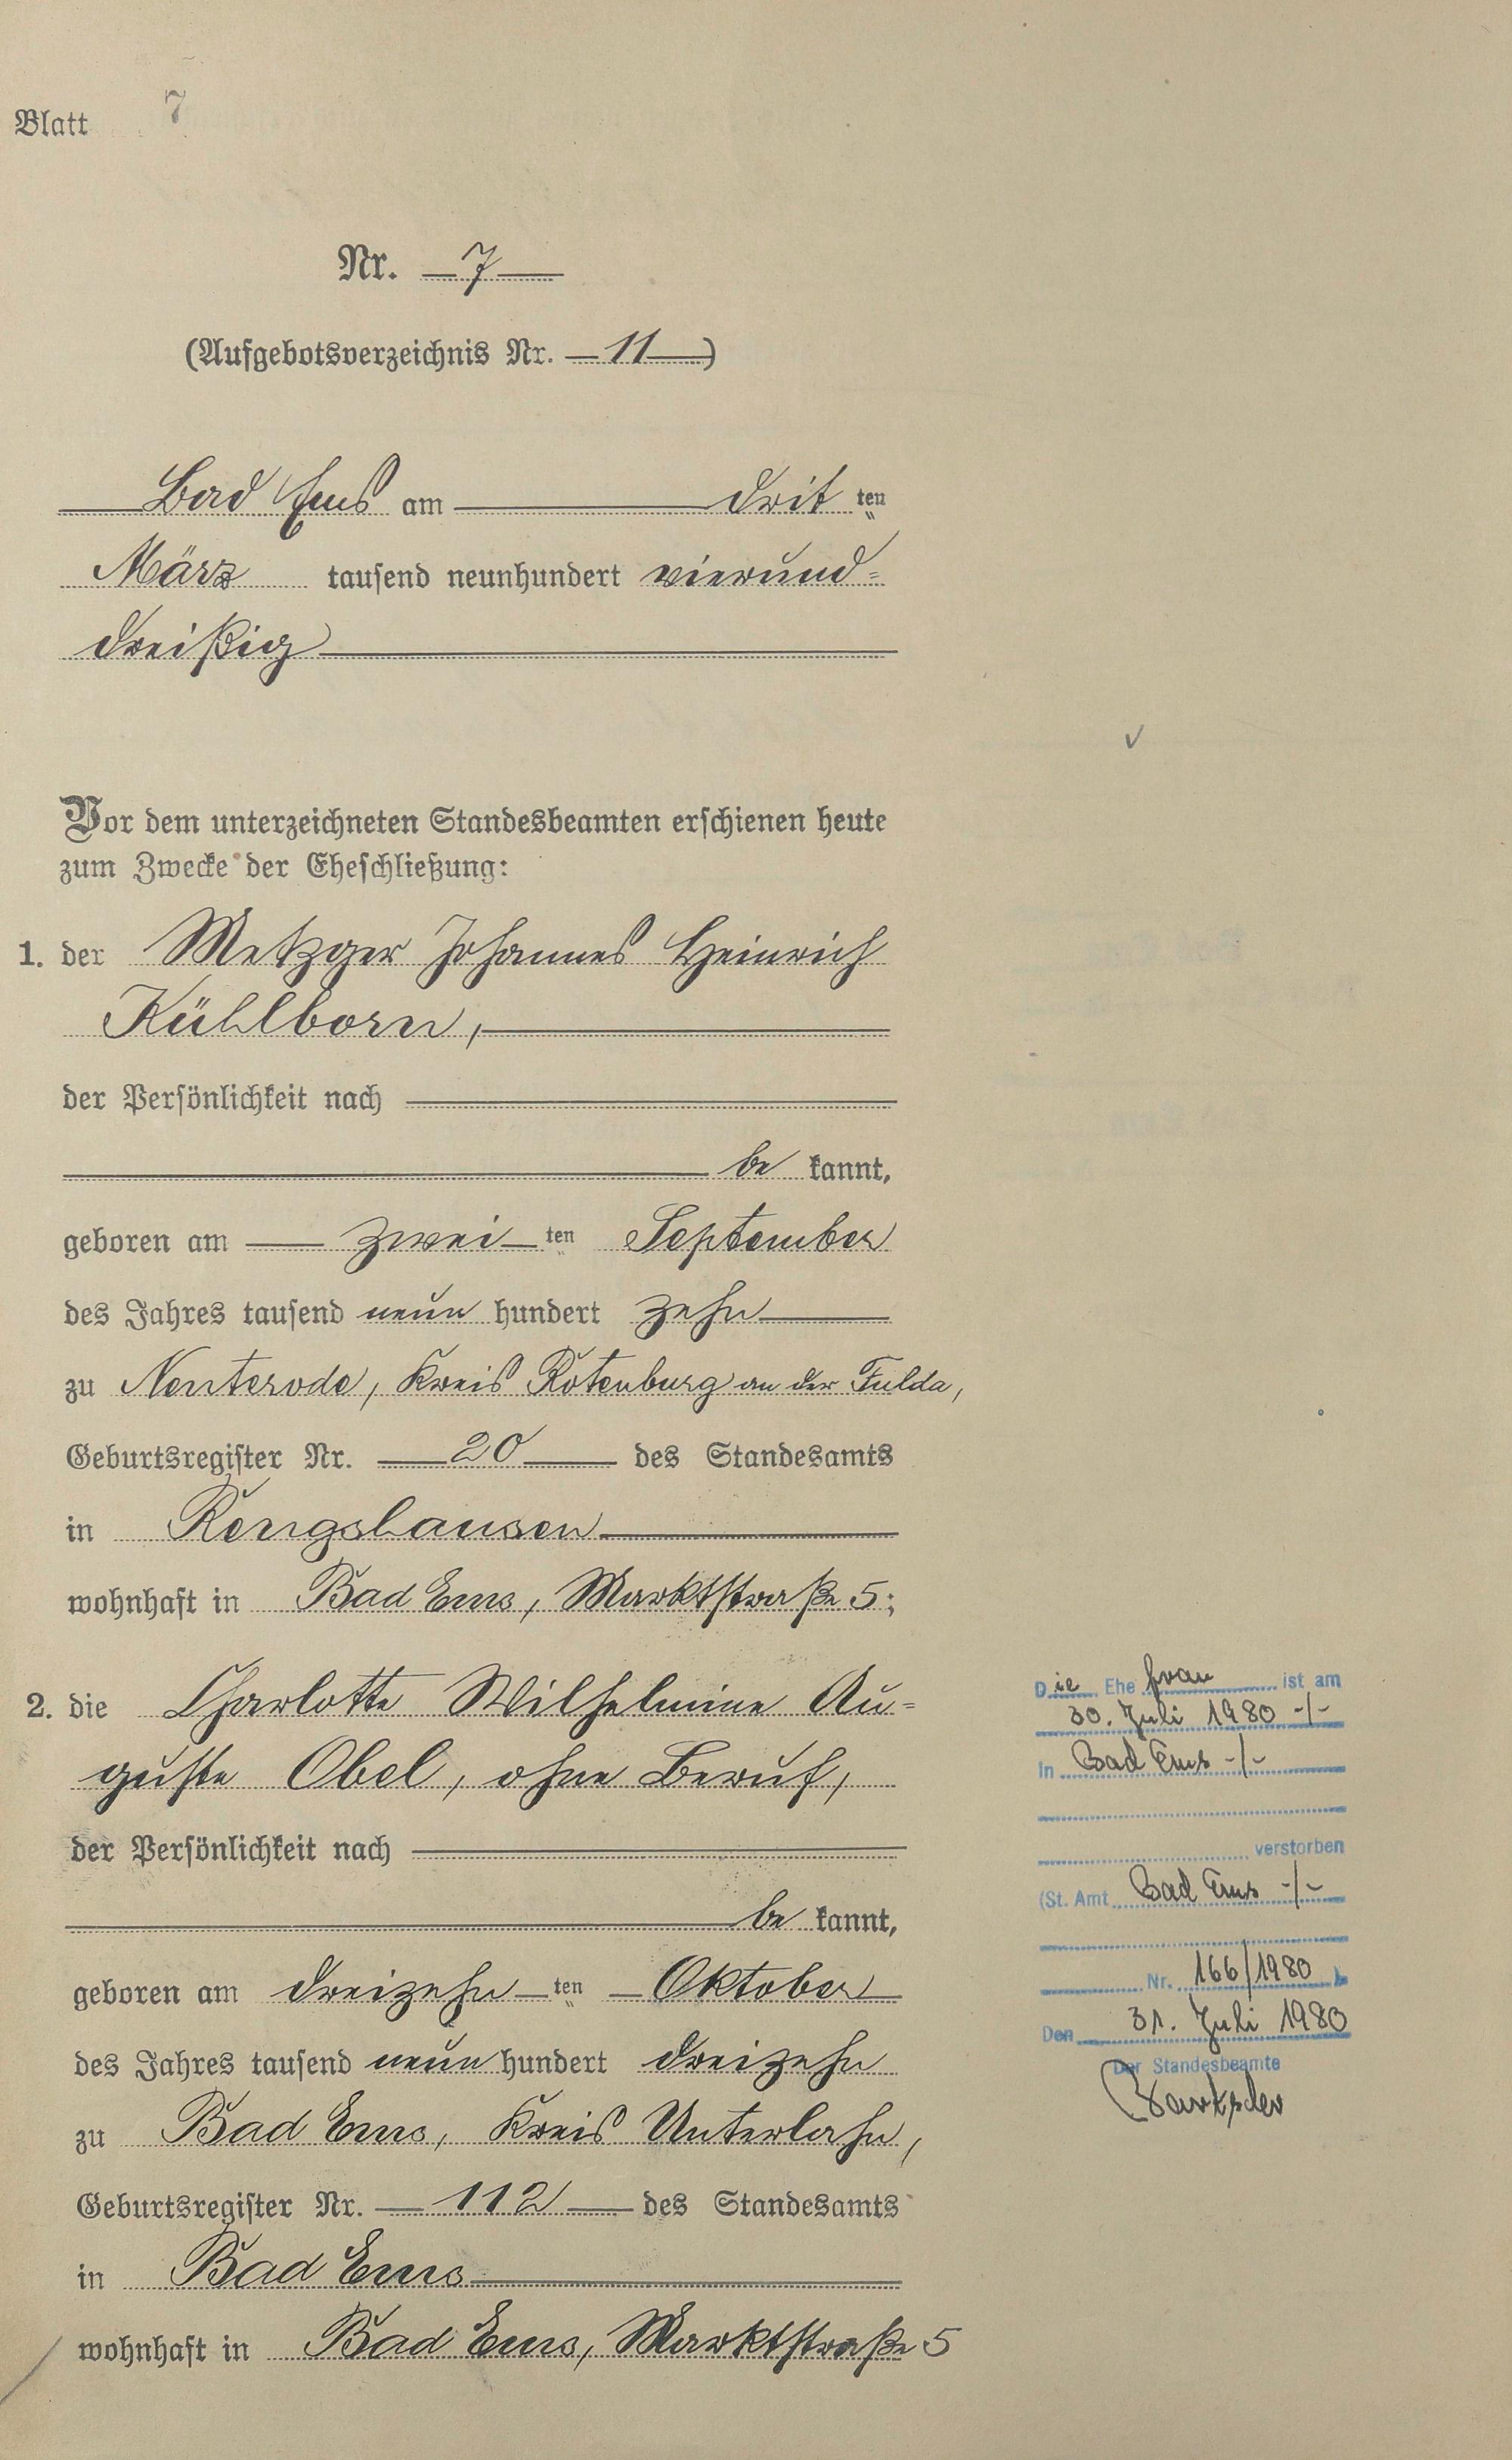 Blatt 7
Nr. 7
(Aufgebotsverzeichnis Nr. 11)
Bad Ems am dritten
März tausend neunhundert vierund-
dreißig
Vor dem unterzeichneten Standesbeamten erschienen heute
zum Zwecke der Eheschließung:
1. der Metzger Johannes Heinrich
Kühlborn,
der Persönlichkeit nach
bekannt,
geboren am zweiten September
des Jahres tausend neunhundert zehn
zu Nenterode, Kreis Rotenburg an der Fulda,
Geburtsregister Nr. 20 des Standesamts
in Rengshausen
wohnhaft in Bad Ems, Marktstraße 5;
2. die Charlotte Wilhelmine Au-
guste Obel, ohne Beruf,
der Persönlichkeit nach
bekannt,
geboren am dreizehnten Oktober
des Jahres tausend neunhundert dreizehn
zu Bad Ems, Kreis Unterlahn,
Geburtsregister Nr. 112 des Standesamts
in Bad Ems
wohnhaft in Bad Ems, Marktstraße 5
Die Ehefrau ist am
30. Juli 1980 -/-
in Bad Ems -/-
verstorben
(St. Amt Bad Ems -/-
Nr. 166/1980)
Den 31. Juli 1980
Der Standesbeamte